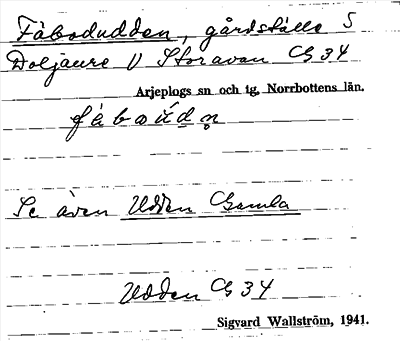 Fäbodudden, gårdställe S
Doljaure V Storavan C8 34
Arjeplogs sn och tg, Norrbottens län.
Se även Udden Gamla
Udden C8 34
Sigvard Wallström, 1941.